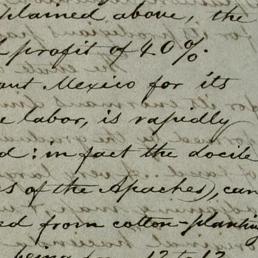 plained above, the
profit of 40%.
Mexico for its
labor, is rapidly
: in fact the docile
s of the Apaches), can
ed from cotton-planting
being from 12 to